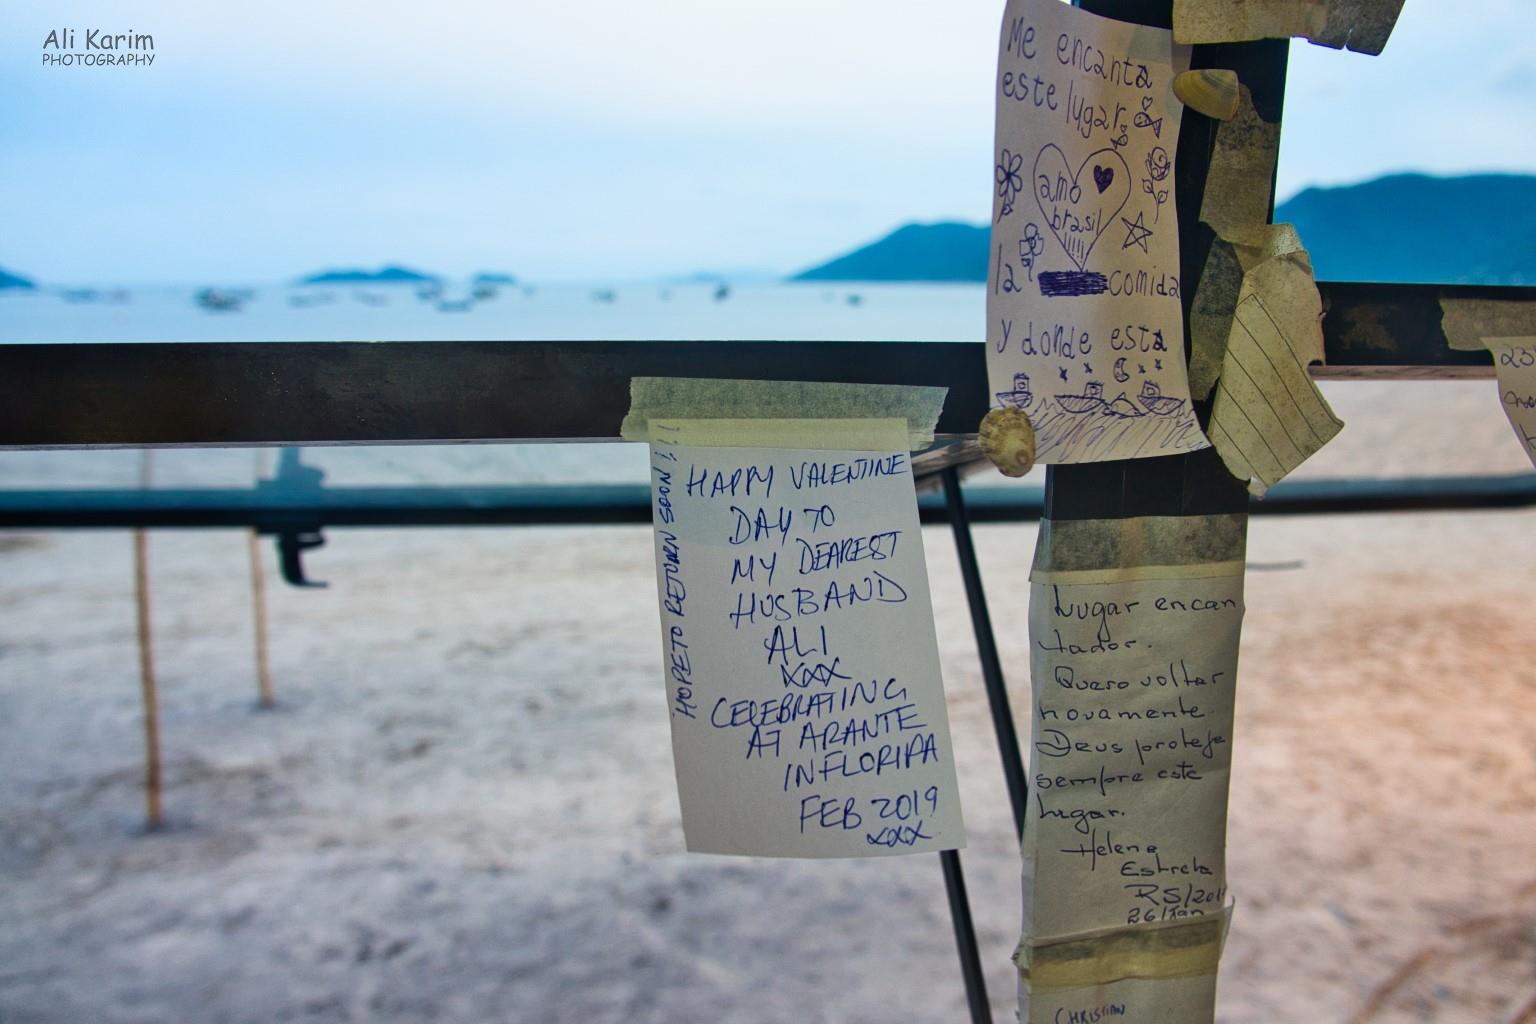 Ali Karim
PHOTOGRAPHY
Me encanta
este lugar
amo
brasil
!!!!
la comida
y donde esta
HAPPY VALENTINE
DAY TO
MY DEAREST
HUSBAND
ALI
xxx
CELEBRATING
AT ARANTE
IN FLORIPA
FEB 2019
xxx
HOPE TO RETURN SOON!!!
Lugar encan
tador.
Quero voltar
novamente.
Deus proteje
sempre este
lugar.
Helena
Estrela
26/Jan
CHRISTIAN